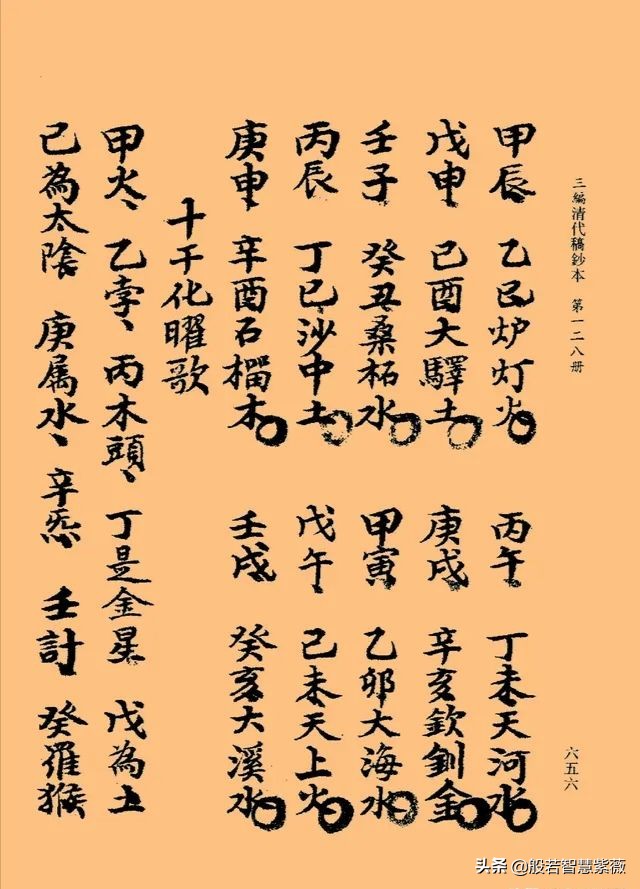 三編清代稿鈔本 第一二八册
甲辰 乙巳炉灯火 丙午 丁未天河水
戊申 己酉大驛土 庚戌 辛亥钦釧金
壬子 癸丑桑柘水 甲寅 乙卯大海水
丙辰 丁巳沙中土 戊午 己未天上火
庚申 辛酉石榴木 壬戌 癸亥大溪水
十干化曜歌
甲火、乙孛、丙木頭、丁是金星 戊為土
己為太陰 庚属水、辛炁 壬計 癸羅猴
六五六
头条@般若智慧紫薇